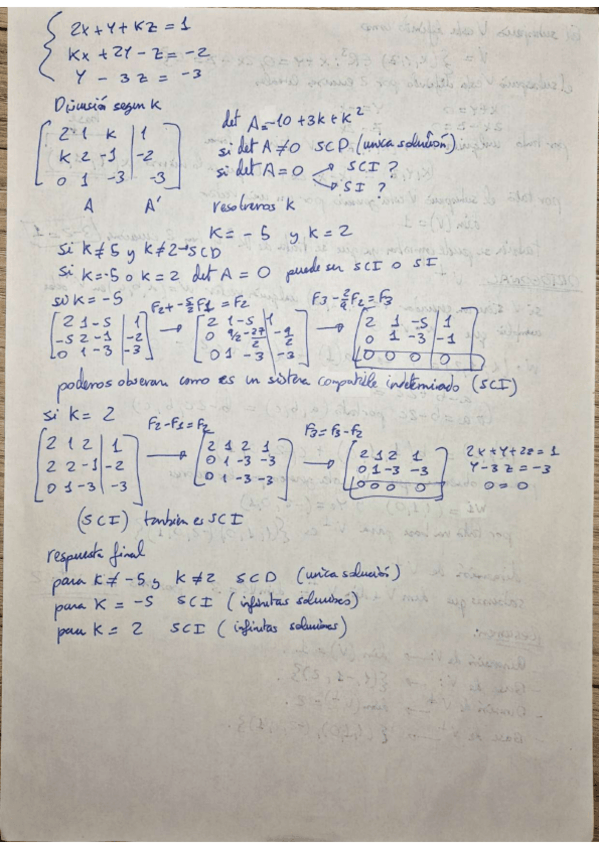 2x + y + kz = 1
kx + 2y - z = -2
y - 3z = -3
Discusión segun k
[ 2 1 k | 1
k 2 -1 | -2
0 1 -3 | -3 ]
A A'
det A = -10 + 3k + k²
si det A ≠ 0 SCD (unica solución)
si det A = 0 SCI ?
SI ?
resolvemos k
k = -5 y k = 2
si k ≠ 5 y k ≠ 2 → SCD
si k = -5 o k = 2 det A = 0 puede ser SCI o SI
si k = -5
[ 2 1 -5 | 1
-5 2 -1 | -2
0 1 -3 | -3 ]
F2 + -5/2 F1 = F2
[ 2 1 -5 | 1
0 9/2 -27/2 | -9/2
0 1 -3 | -3 ]
F3 - 2/9 F2 = F3
[ 2 1 -5 | 1
0 1 -3 | -1
0 0 0 | 0 ]
podemos observar como es un sistema compatible indeterminado (SCI)
si k = 2
[ 2 1 2 | 1
2 2 -1 | -2
0 1 -3 | -3 ]
F2 - F1 = F2
[ 2 1 2 1
0 1 -3 -3
0 1 -3 -3 ]
F3 = F3 - F2
[ 2 1 2 1
0 1 -3 -3
0 0 0 0 ]
2x + y + 2z = 1
y - 3z = -3
0 = 0
(SCI) tambien es SCI
respuesta final
para k ≠ -5 y k ≠ 2 SCD (unica solución)
para k = -5 SCI (infinitas soluciones)
para k = 2 SCI (infinitas soluciones)